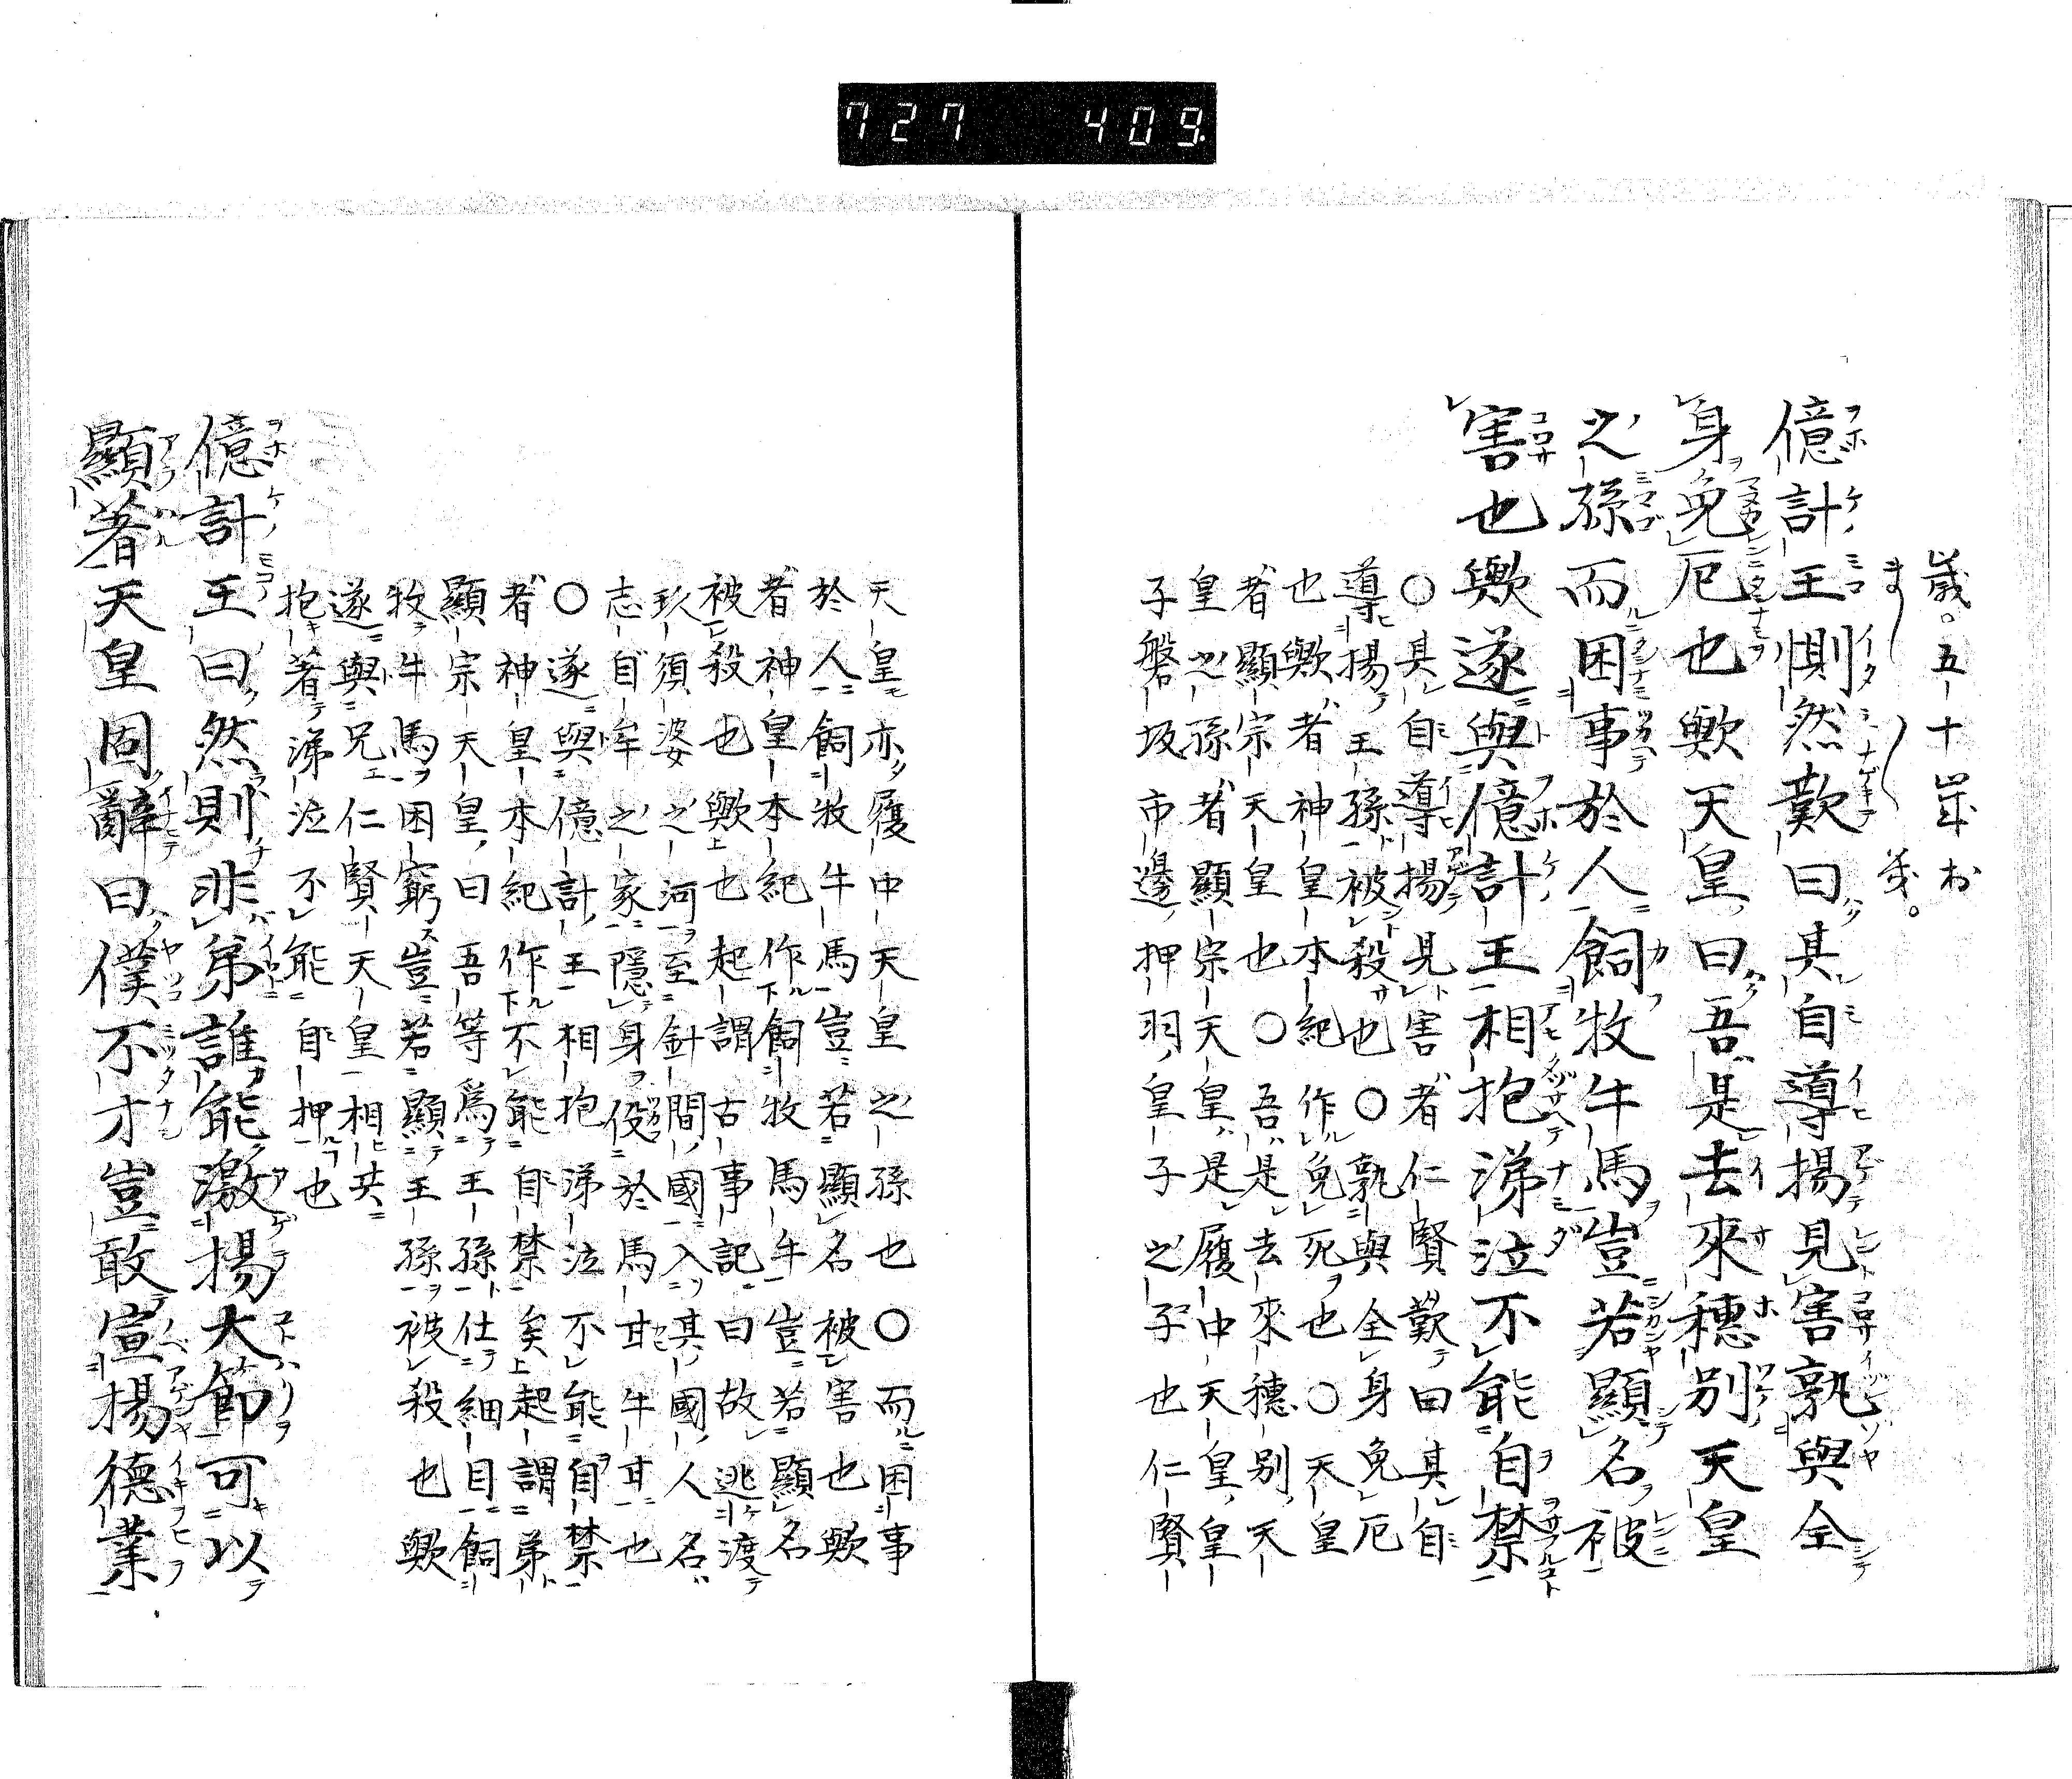 727 409.
歳。五十歳お
億計王惻然歎曰其自導揚見害孰與全
身免厄也歟天皇曰吾是去來穗別天皇
之孫而困事於人飼牧牛馬豈若顯名被
害也歟遂與億計王相抱涕泣不能自禁
○其自導揚見害者仁賢歎曰其自
導揚王孫被殺也○孰與全身免厄
也歟者神皇本紀作免死也○天皇
者顯宗天皇也○吾是去來穗別天
皇之孫者顯宗天皇是履中天皇皇
子磐坂市邊押羽皇子之子也仁賢
天皇亦履中天皇之孫也○而困事
於人飼牧牛馬豈若顯名被害也歟
者神皇本紀作飼牧馬牛豈若顯名
被殺也歟也起謂古事記曰故逃渡
玖須婆之河至針間國入其國人名
志自牟之家隱身役於馬甘牛甘也
○遂與億計王相抱涕泣不能自禁
者神皇本紀作不能自禁矣起謂弟
顯宗天皇曰吾等爲王孫仕細目飼
牧牛馬困窮豈若顯王孫被殺也歟
遂與兄仁賢天皇相共
抱著涕泣不能自押也
億計王曰然則非弟誰能激揚大節可以
顯著天皇固辭曰僕不才豈敢宣揚德業